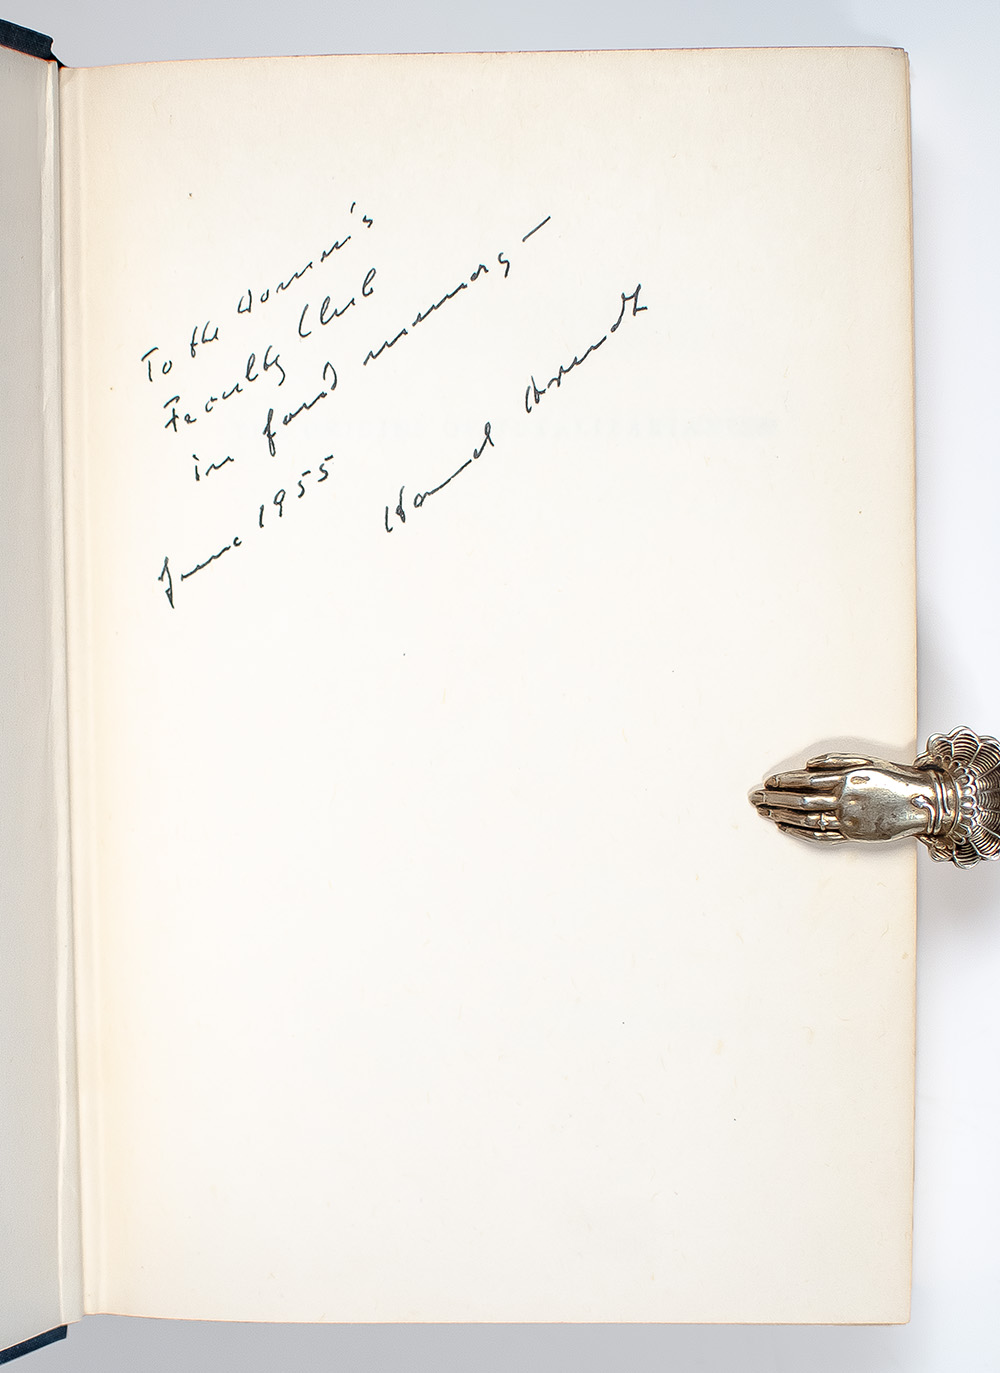 To the Women's
Faculty Club
in fond memory —
Hannah Arendt
June 1955